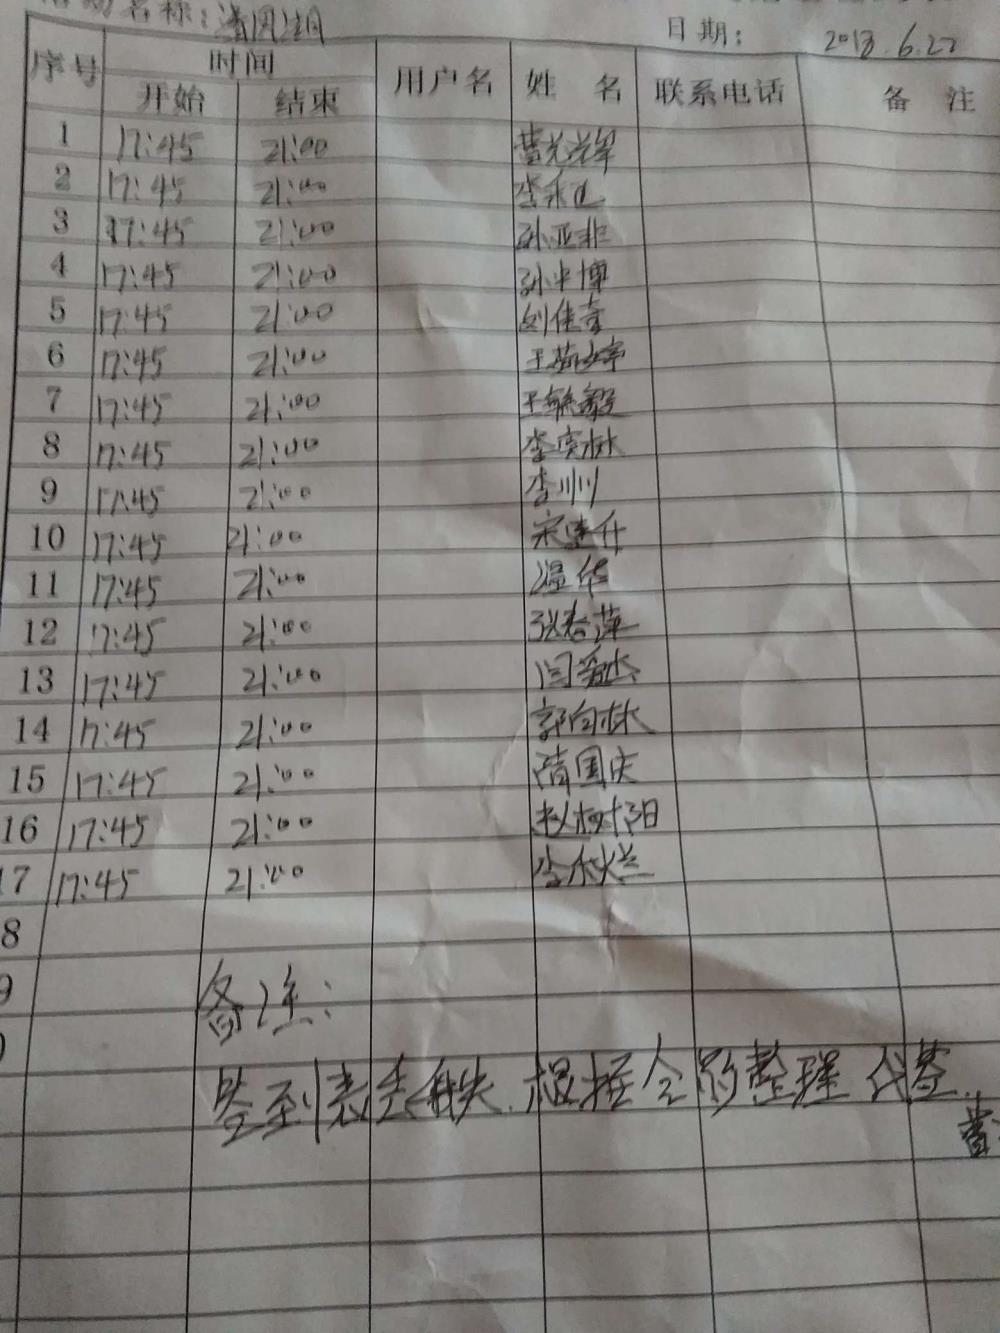 活动名称:清网组
日期: 2018.6.22
序号 时间 用户名 姓 名 联系电话 备 注
开始 结束
1 17:45 21:00
2 17:45 21:00
3 17:45 21:00 孙亚非
4 17:45 21:00 孙中博
5 17:45 21:00 刘佳音
6 17:45 21:00
7 17:45 21:00 王毓毅
8 17:45 21:00 李宾林
9 17:45 21:00 李川川
10 17:45 21:00 宋建升
11 17:45 21:00 温华
12 17:45 21:00 张春萍
13 17:45 21:00 闫爱杰
14 17:45 21:00 郭向林
15 17:45 21:00 隋国庆
16 17:45 21:00 赵树阳
17 17:45 21:00 李永兰
8
9
备注:
签到表丢失 根据合影整理代签.